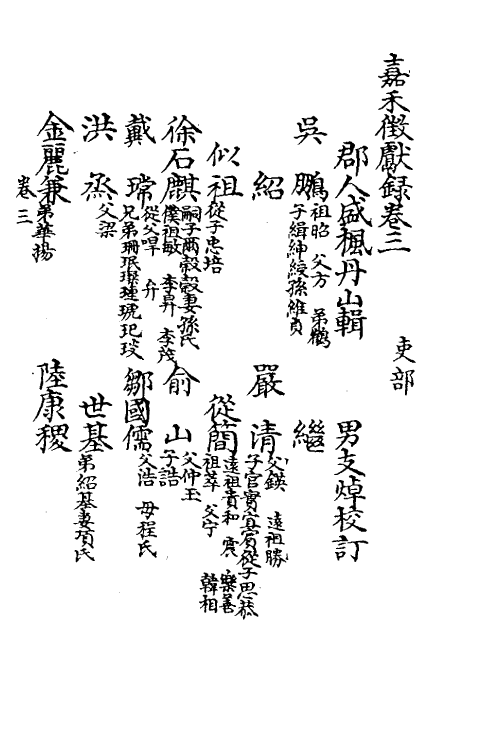 嘉禾徵獻録卷三 吏部
郡人盛楓丹山輯 男支焯校訂
吳鵬 祖昭 父方 弟鶴 子緝紳綬孫維貞 繼
紹 嚴清 父鍈 遠祖勝 子官實寘賓從子思恭
似祖 從子忠培 從簡 遠祖貴和 震 樂善 祖萃 父宁 韓相
徐石麒 嗣子爾穀穀妻孫氏 僕祖敏 李昇 李茂 俞山 父仲玉 子誥
戴㻶 從父㫤 弁 兄弟珊珉璨璉琥玘琰 鄒國儒 父浩 母程氏
洪烝 父梁 世基 弟紹基妻項氏
金麗兼 弟華揚 陸康稷
卷三